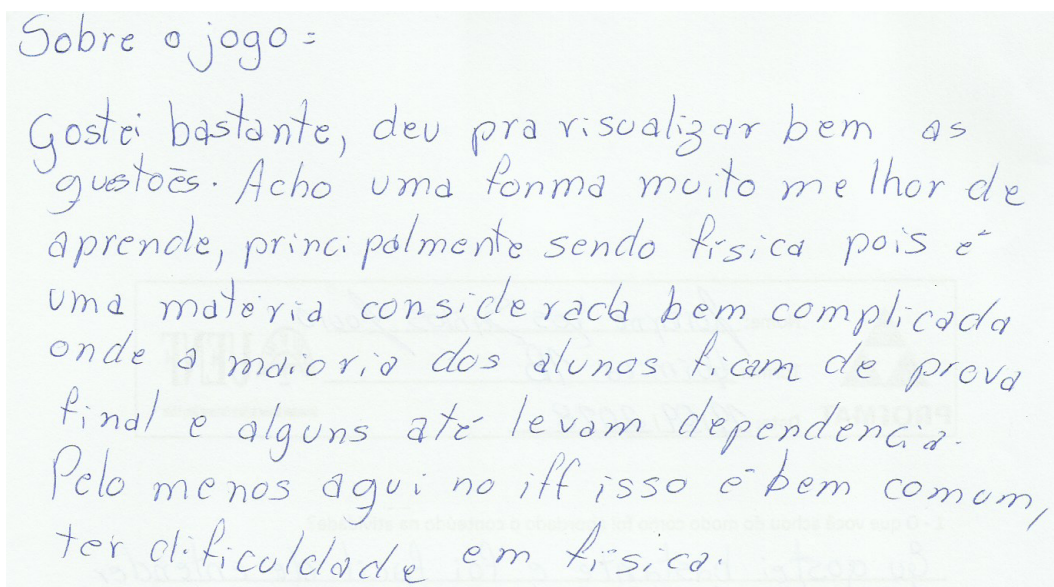 Sobre o jogo =
Gostei bastante, deu pra visualizar bem as
questoẽs. Acho uma fonma muito melhor de
aprende, principalmente sendo física pois é
uma matéria considerada bem complicada
onde a maioria dos alunos ficam de prova
final e alguns até levam dependencia.
Pelo menos aqui no iff isso é bem comum,
ter dificuldade em física.